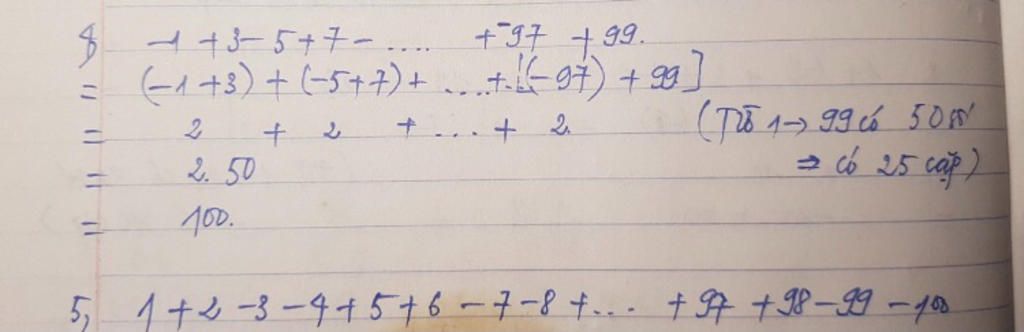 8 -1 + 3 - 5 + 7 - .... + -97 + 99.
= (-1+3) + (-5+7) + .... + [(-97) + 99]
= 2 + 2 + ... + 2. (Từ 1 → 99 có 50 số
= 2. 50 ⇒ có 25 cặp)
= 100.
5, 1 + 2 - 3 - 4 + 5 + 6 - 7 - 8 + ... + 97 + 98 - 99 - 100